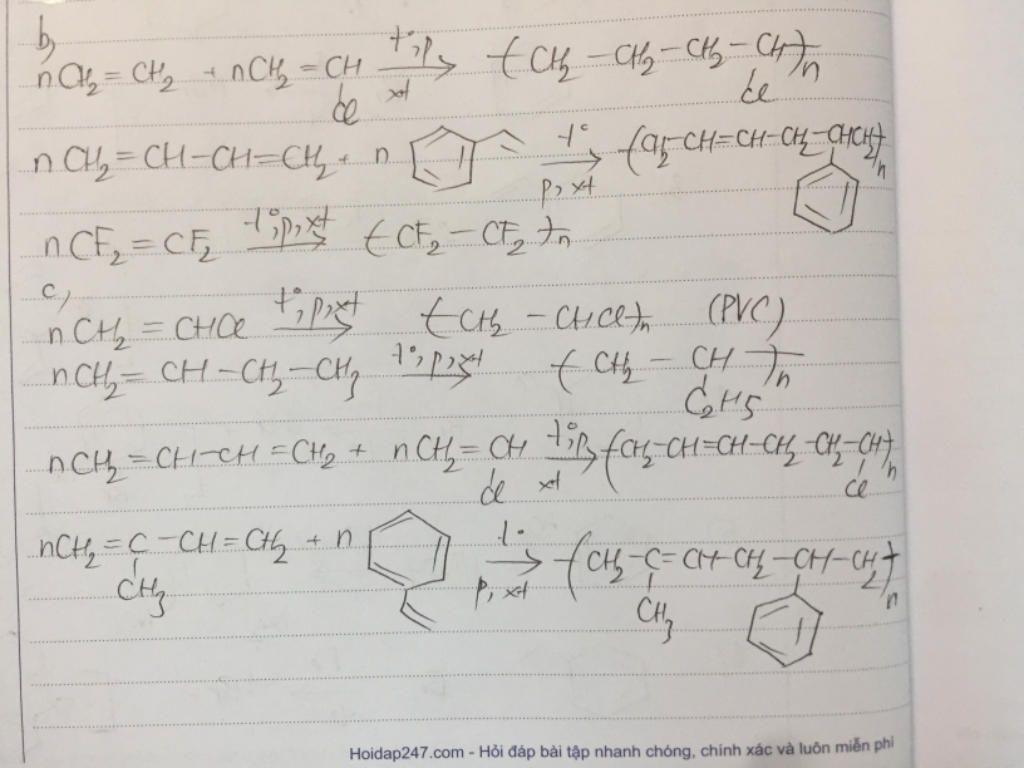 b)
nCH₂ = CH₂ + nCH₂ = CH(Cl) –t°, p, xt→ (CH₂ – CH₂ – CH₂ – CH(Cl))n
nCH₂ = CH – CH = CH₂ + n –t°, p, xt→ (CH₂ – CH = CH – CH₂ – CHCH₂)n
nCF₂ = CF₂ –t°, p, xt→ (CF₂ – CF₂)n
c)
nCH₂ = CHCl –t°, p, xt→ (CH₂ – CHCl)n (PVC)
nCH₂ = CH – CH₂ – CH₃ –t°, p, xt→ (CH₂ – CH(C₂H₅))n
nCH₂ = CH – CH = CH₂ + nCH₂ = CH(Cl) –t°, p, xt→ (CH₂ – CH = CH – CH₂ – CH₂ – CH(Cl))n
nCH₂ = C(CH₃) – CH = CH₂ + n –t°, p, xt→ (CH₂ – C(CH₃) = CH – CH₂ – CH – CH₂)n
Hoidap247.com - Hỏi đáp bài tập nhanh chóng, chính xác và luôn miễn phí